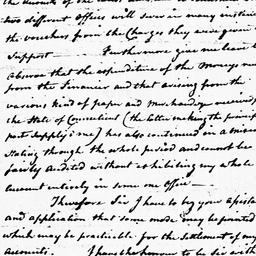 the Accounts of the
two different Offices will serve in many instances
the Vouchers from the Charges they were given
Support — Furthermore give me leave to
observe that the expenditure of the Moneys rec
from the Financier and that arising from the
various kind of paper and Merchandize received
the State of Connecticut (the latter making the princip
part supply'd me) has also continued in a mixed
State through the whole period and cannot be
fairly Audited without exhibiting my whole
Account entirely in some one Office —
Therefore Sir I have to beg your Assista
and application that some mode may be pointed
which may be practicable for the Settlement of my
Accounts. I have the honour to be Sir with